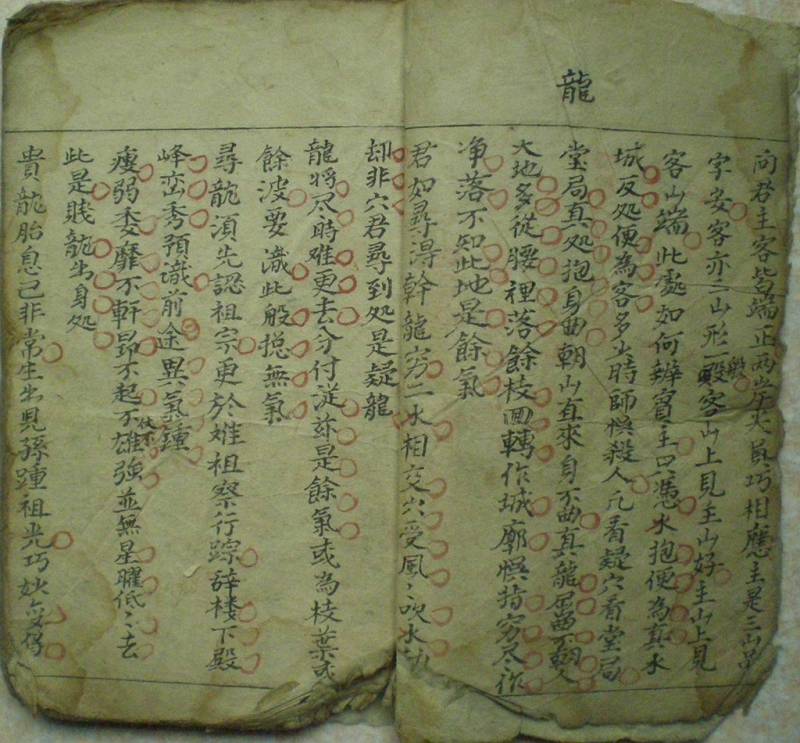 龍
向君主客皆端正両岸尖員巧相應主是三山品
字安客亦三山形一般客山上見主山好主山上見
客山端此處如何辨賓主只憑水抱便為真水
城反処便為客多少時師悞殺人凢看疑穴看堂局
堂局真処抱身曲朝山直來身不曲真龍屈曲不朝人
大地多從腰裡落餘枝回轉作城廓悞指穷尽作
净落不知此地是餘氣
君如尋淂幹龍穷二水相交穴受風〻吹水劫
却非穴君尋到処是疑龍
龍將尽時难更去分付泛䒵是餘氣或為枝葉或
餘波要識此般揔無氣
尋龍湏先認祖宗更於雉祖察行踪辞楼下殿
峰峦秀預識前途異氣鍾
瘦弱委靡不軒昻不起不伏不雄強並無星曜低〻去
此是賎龍出身処
貴龍胎息已非常生出児孫踵祖光巧妙